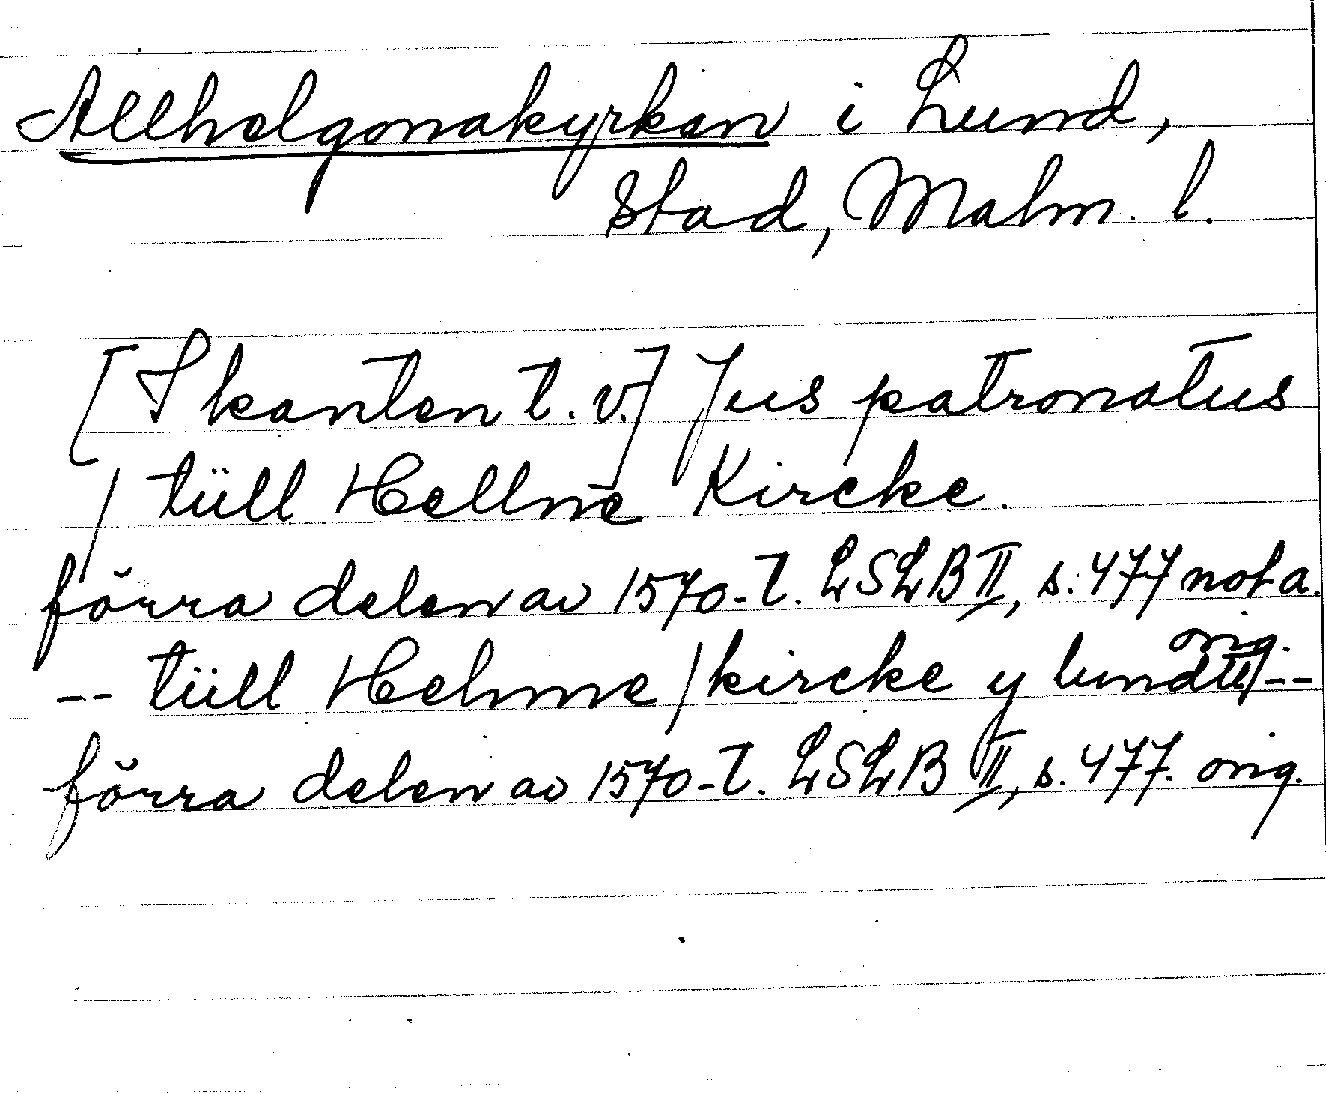 Allhelgonakyrkan i Lund,
Stad, Malm. l.
[I kanten t. v.] Jus patronatus
/ tüll Hellne Kircke.
förra delen av 1570-t. LSLB II, s. 477 not a.
orig.
-- tüll Helmme / kircke y lundtt --
förra delen av 1570-t. LSLB II, s. 477. orig.